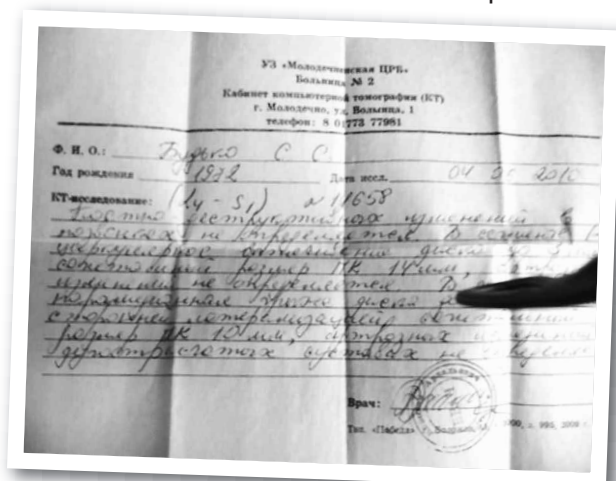 УЗ «Молодечненская ЦРБ»
Больница № 2
Кабинет компьютерной томографии (КТ)
г. Молодечно, ул. Волынца, 1
телефон: 8 01773 77981
Ф. И. О.: Будько С С.
Год рождения 1972 Дата иссл. 04 2010
КТ-исследование: (L4 - S1) № 11658
Костно деструктивных изменений в
позвонках не определяется. В сегменте
циркулярное выпячивание диска до 3 мм
сагиттальный размер ПК 14 мм,
изменений не определяется. В
парамедианная грыжа диска
сторонней латерализацией, сагиттальный
размер ПК 10 мм, артрозных изменений
дугоотростчатых суставах не
Врач:
Тип. «Победа»